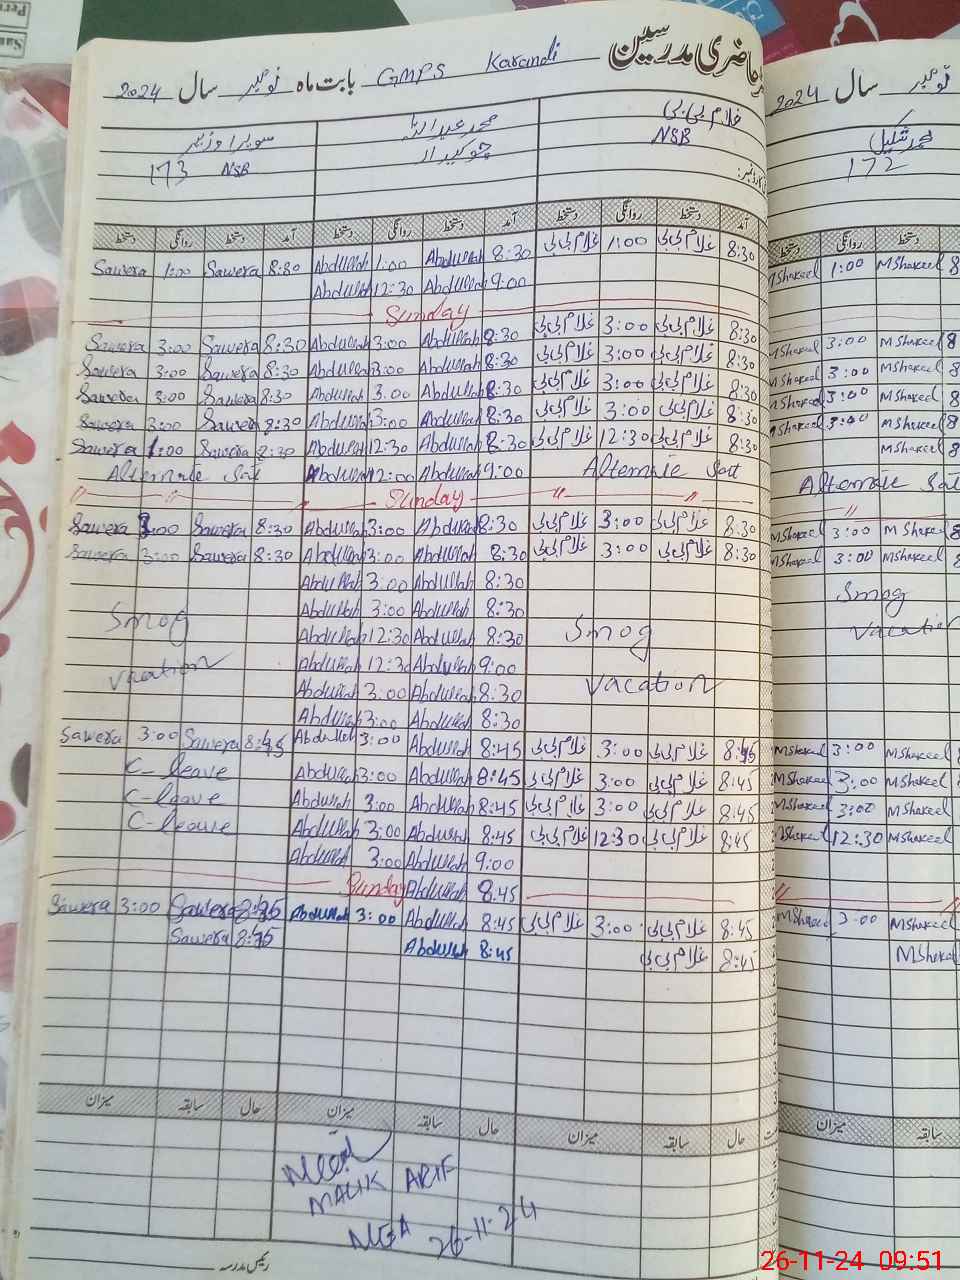 حاضری مدرسین GMPS Karandi بابت ماہ نومبر سال 2024
نومبر سال 2024
غلام بی بی
محمد عبداللہ
NSB
چوکیدار
173 NSB
محمد شکیل
172
آمد دستخط روانگی دستخط آمد دستخط روانگی دستخط آمد دستخط روانگی دستخط
دستخط روانگی دستخط
8:30 غلام بی بی 1:00 غلام بی بی 8:30 Abdullah 1:00 Abdullah 8:30 Sawera 1:00 Sawera
MShakeel 1:00 MShakeel 8
9:00 Abdullah 12:30 Abdullah
Sunday
8:30 غلام بی بی 3:00 غلام بی بی 8:30 Abdullah 3:00 Abdullah 8:30 Sawera 3:00 Sawera
MShakeel 3:00 MShakeel 8
8:30 غلام بی بی 3:00 غلام بی بی 8:30 Abdullah 3:00 Abdullah 8:30 Sawera 3:00 Sawera
MShakeel 3:00 MShakeel 8
8:30 غلام بی بی 3:00 غلام بی بی 8:30 Abdullah 3:00 Abdullah 8:30 Sawera 3:00 Sawera
MShakeel 3:00 MShakeel 8
8:30 غلام بی بی 3:00 غلام بی بی 8:30 Abdullah 3:00 Abdullah 8:30 Sawera 3:00 Sawera
MShakeel 3:00 MShakeel 8
8:30 غلام بی بی 12:30 غلام بی بی 8:30 Abdullah 12:30 Abdullah 8:30 Sawera 1:00 Sawera
MShakeel 8
Alternate Sat 9:00 Abdullah 12:00 Abdullah Alternate Sat
Alternate Sat
Sunday
8:30 غلام بی بی 3:00 غلام بی بی 8:30 Abdullah 3:00 Abdullah 8:30 Sawera 3:00 Sawera
MShakeel 3:00 MShakeel 8
8:30 غلام بی بی 3:00 غلام بی بی 8:30 Abdullah 3:00 Abdullah 8:30 Sawera 3:00 Sawera
MShakeel 3:00 MShakeel 8
8:30 Abdullah 3:00 Abdullah
8:30 Abdullah 3:00 Abdullah
Smog 8:30 Abdullah 12:30 Abdullah Smog
Smog
9:00 Abdullah 12:30 Abdullah
vacation 8:30 Abdullah 3:00 Abdullah vacation
vacation
8:30 Abdullah 3:00 Abdullah
8:45 غلام بی بی 3:00 غلام بی بی 8:45 Abdullah 3:00 Abdullah 8:45 Sawera 3:00 Sawera
MShakeel 3:00 MShakeel
8:45 غلام بی بی 3:00 غلام بی بی 8:45 Abdullah 3:00 Abdullah C-leave
MShakeel 3:00 MShakeel
8:45 غلام بی بی 3:00 غلام بی بی 8:45 Abdullah 3:00 Abdullah C-leave
MShakeel 3:00 MShakeel
8:45 غلام بی بی 12:30 غلام بی بی 8:45 Abdullah 3:00 Abdullah C-leave
MShakeel 12:30 MShakeel
9:00 Abdullah 3:00 Abdullah
8:45 Abdullah Sunday
8:45 غلام بی بی 3:00 غلام بی بی 8:45 Abdullah 3:00 Abdullah 8:45 Sawera 3:00 Sawera
MShakeel 3:00 MShakeel
8:45 غلام بی بی 8:45 Abdullah 8:45 Sawera
MShakeel
حال سابقہ میزان حال سابقہ میزان حال سابقہ میزان
میزان سابقہ
MALIK ARIF
26-11-24
رئیس مدرسہ
26-11-24 09:51